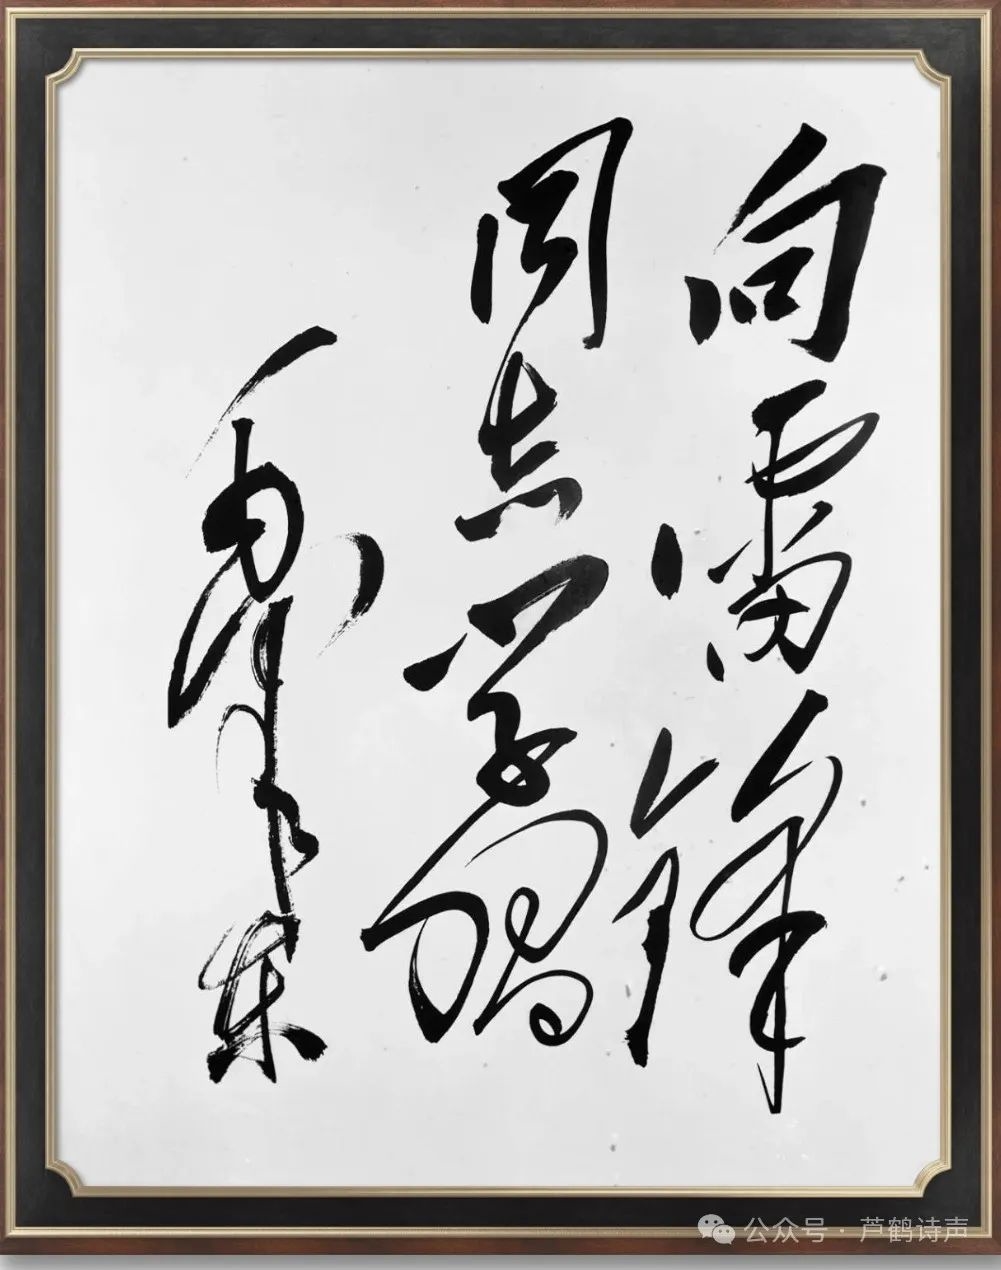 向雷锋
同志学习
毛泽东
公众号 · 芦鹤诗声